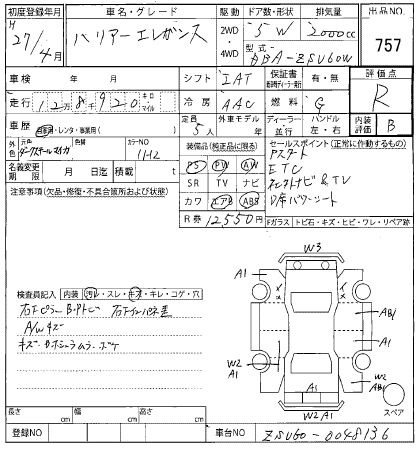 初度登録年月 車名・グレード 駆動 ドア数・形状 排気量 出品NO.
H 27/4月 ハリアーエレガンス 2WD 4WD 5W 2000cc 757
型式 DBA-ZSU60W
車検 年 月 シフト IAT 保証書 有・無 評価点 R
走行 12万8千920 キロ マイル 冷房 AAC 燃料 G
車歴 自家用・レンタ・事業用( ) 定員 5人 外車モデル ディーラー 並行 ハンドル 左・右 内装評価 B
外色 元色 色替 カラーNO 1112
装備品(純正品に限る) セールスポイント(正常に作動するもの)
PS PW AW Pスタート
SR TV ナビ ETC
カワ エアB ABS ナビ & TV
D席パワーシート
名義変更期限 月 日迄 積載 t
R券 12,550円
注意事項(欠品・修復・不具合箇所および状態)
Fガラス トビ石・キズ・ヒビ・ワレ・リペア跡
W3
A1
A1
AB1
A1
W2
A1
A1
W2
AB1
W2A1
スペア
検査員記入 内装 汚レ・スレ・キズ・キレ・コゲ・穴
A/Wキズ
長さ cm 幅 cm 高さ cm
登録NO 車台NO ZSU60-0048136